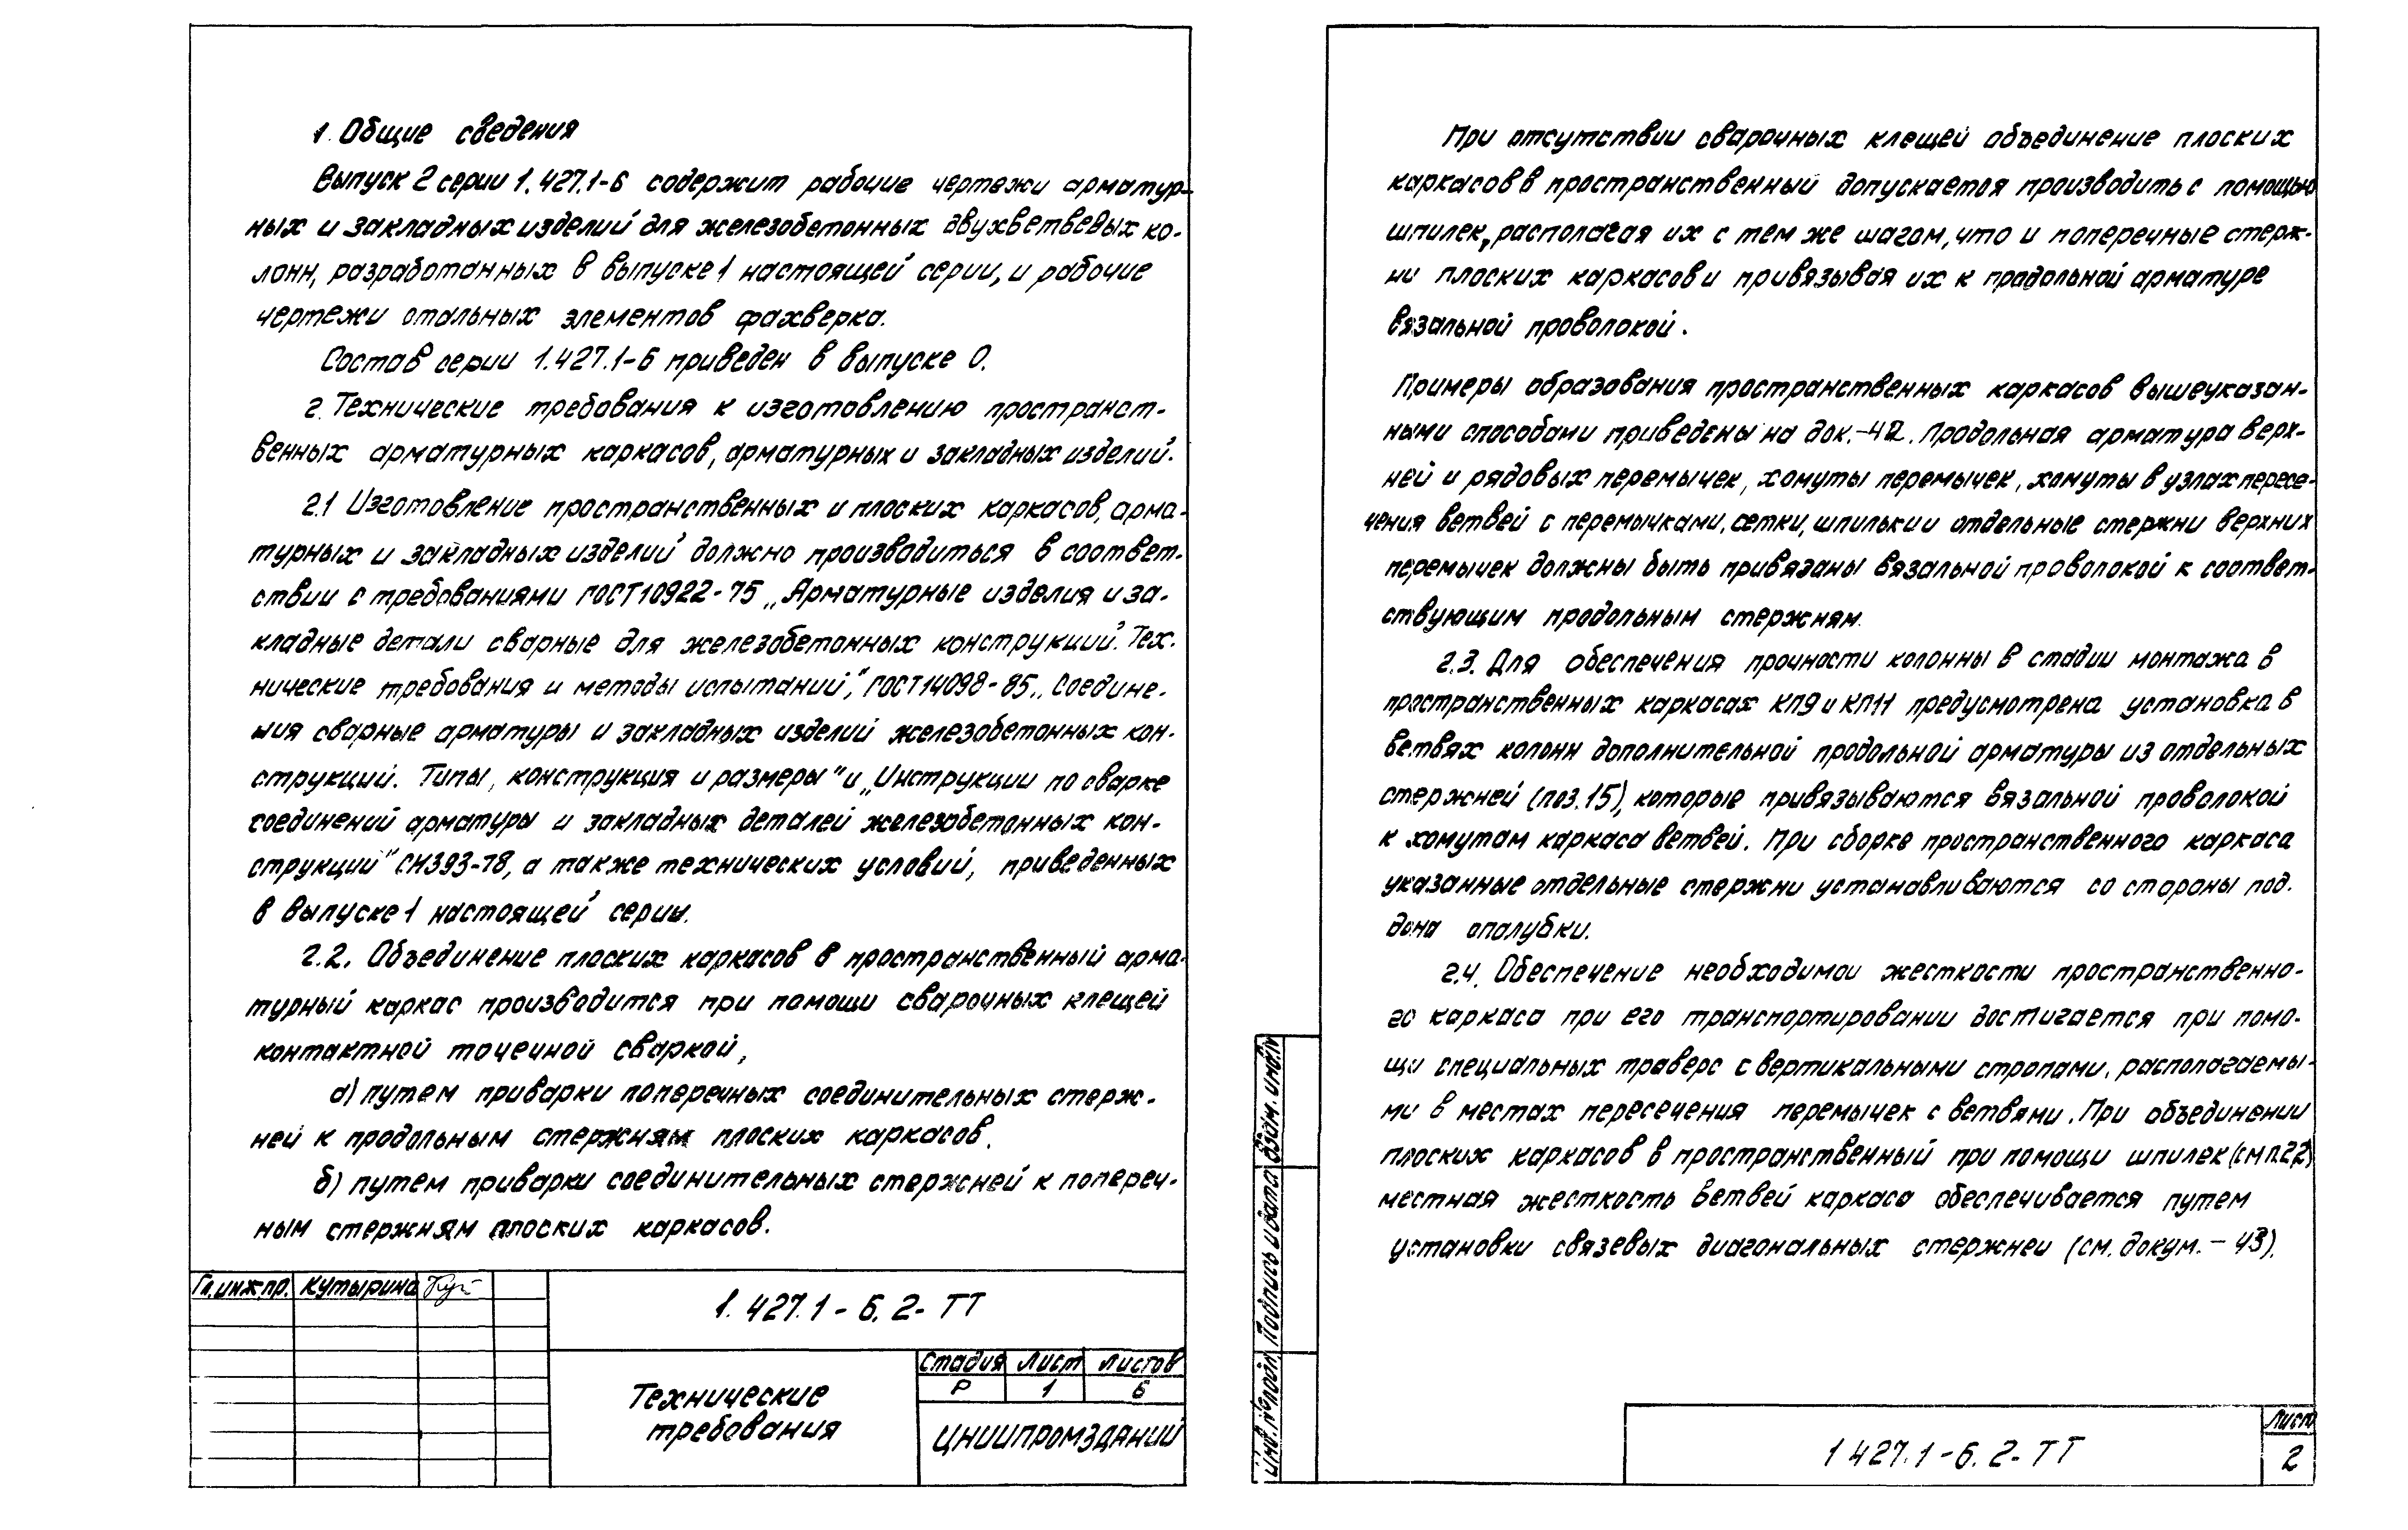 1. Общие сведения
Выпуск 2 серии 1.427.1-6 содержит рабочие чертежи арматур-
ных и закладных изделий для железобетонных двухветвевых ко-
лонн, разработанных в выпуске 1 настоящей серии, и рабочие
чертежи стальных элементов фахверка.
Состав серии 1.427.1-6 приведен в выпуске 0.
2. Технические требования к изготовлению пространст-
венных арматурных каркасов, арматурных и закладных изделий.
2.1 Изготовление пространственных и плоских каркасов, арма-
турных и закладных изделий должно производиться в соответ-
ствии с требованиями ГОСТ 10922-75 „Арматурные изделия и за-
кладные детали сварные для железобетонных конструкций. Тех-
нические требования и методы испытаний", ГОСТ 14098-85 „Соедине-
ния сварные арматуры и закладных изделий железобетонных кон-
струкций. Типы, конструкция и размеры" и „Инструкции по сварке
соединений арматуры и закладных деталей железобетонных кон-
струкций" СН393-78, а также технических условий, приведенных
в выпуске 1 настоящей серии.
2.2. Объединение плоских каркасов в пространственный арма-
турный каркас производится при помощи сварочных клещей
контактной точечной сваркой,
а) путем приварки поперечных соединительных стерж-
ней к продольным стержням плоских каркасов.
б) путем приварки соединительных стержней к попереч-
ным стержням плоских каркасов.
Гл. инж. пр. Кутырина
1.427.1-6.2-ТТ
Технические
требования
Стадия Лист Листов
Р 1 6
ЦНИИПРОМЗДАНИЙ
При отсутствии сварочных клещей объединение плоских
каркасов в пространственный допускается производить с помощью
шпилек, располагая их с тем же шагом, что и поперечные стерж-
ни плоских каркасов и привязывая их к продольной арматуре
вязальной проволокой.
Примеры образования пространственных каркасов вышеуказан-
ными способами приведены на док.-42. Продольная арматура верх-
ней и рядовых перемычек, хомуты перемычек, хомуты в узлах пересе-
чения ветвей с перемычками, сетки, шпильки и отдельные стержни верхних
перемычек должны быть привязаны вязальной проволокой к соответ-
ствующим продольным стержням.
2.3. Для обеспечения прочности колонны в стадии монтажа в
пространственных каркасах КП9 и КП11 предусмотрена установка в
ветвях колонн дополнительной продольной арматуры из отдельных
стержней (поз.15), которые привязываются вязальной проволокой
к хомутам каркаса ветвей. При сборке пространственного каркаса
указанные отдельные стержни устанавливаются со стороны под-
дона опалубки.
2.4. Обеспечение необходимой жесткости пространственно-
го каркаса при его транспортировании достигается при помо-
щи специальных траверс с вертикальными стропами, располагаемы-
ми в местах пересечения перемычек с ветвями. При объединении
плоских каркасов в пространственный при помощи шпилек (см п.2.2)
местная жесткость ветвей каркаса обеспечивается путем
установки связевых диагональных стержней (см. докум. - 43).
Инв. № подл. Подпись и дата Взам. инв. №
1 427.1-6.2-ТТ
Лист
2